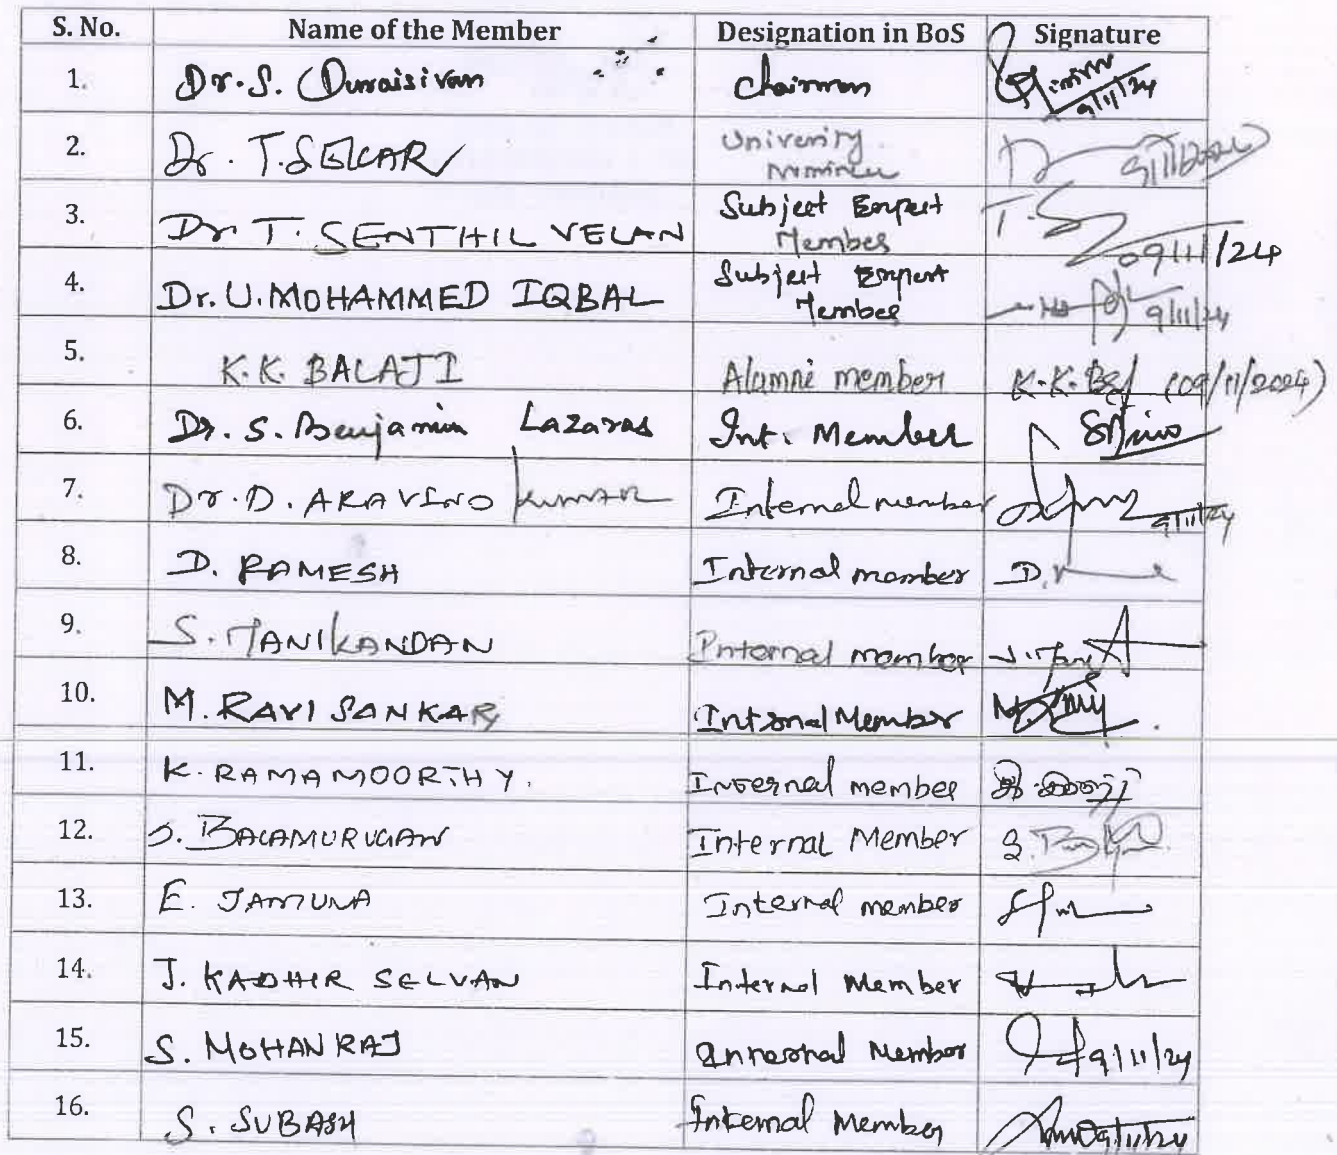 S. No. Name of the Member Designation in BoS Signature
1. Dr. S. Duraisivan Chairman 9/11/24
2. Dr. T. SEKAR University
Nominee 9/11/2024
3. Dr. T. SENTHIL VELAN Subject Expert
Member T. S 09/11/24
4. Dr. U. MOHAMMED IQBAL Subject Expert
Member 9/11/24
5. K.K. BALAJI Alumni member K.K. (09/11/2024)
6. Dr. S. Benjamin Lazarus Int. Member
7. Dr. D. ARAVIND kumar Internal member 9/11/24
8. D. RAMESH Internal member D.
9. S. MANIKANDAN Internal member
10. M. RAVI SANKAR Internal Member
11. K. RAMAMOORTHY. Internal member
12. S. BALAMURUGAN Internal Member
13. E. JAMUNA Internal member
14. J. KADHIR SELVAN Internal Member
15. S. MOHANRAJ Internal Member 9/11/24
16. S. SUBASH Internal Member 09/11/24